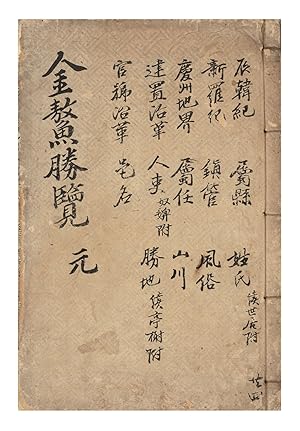 辰韓紀 屬縣 姓氏
新羅紀 鎮管 風俗
慶州地界 屬任 山川
建置沿革 人事 奴婢附 勝地 亭榭附
官號沿革 邑名
金鰲勝覽 元
共四